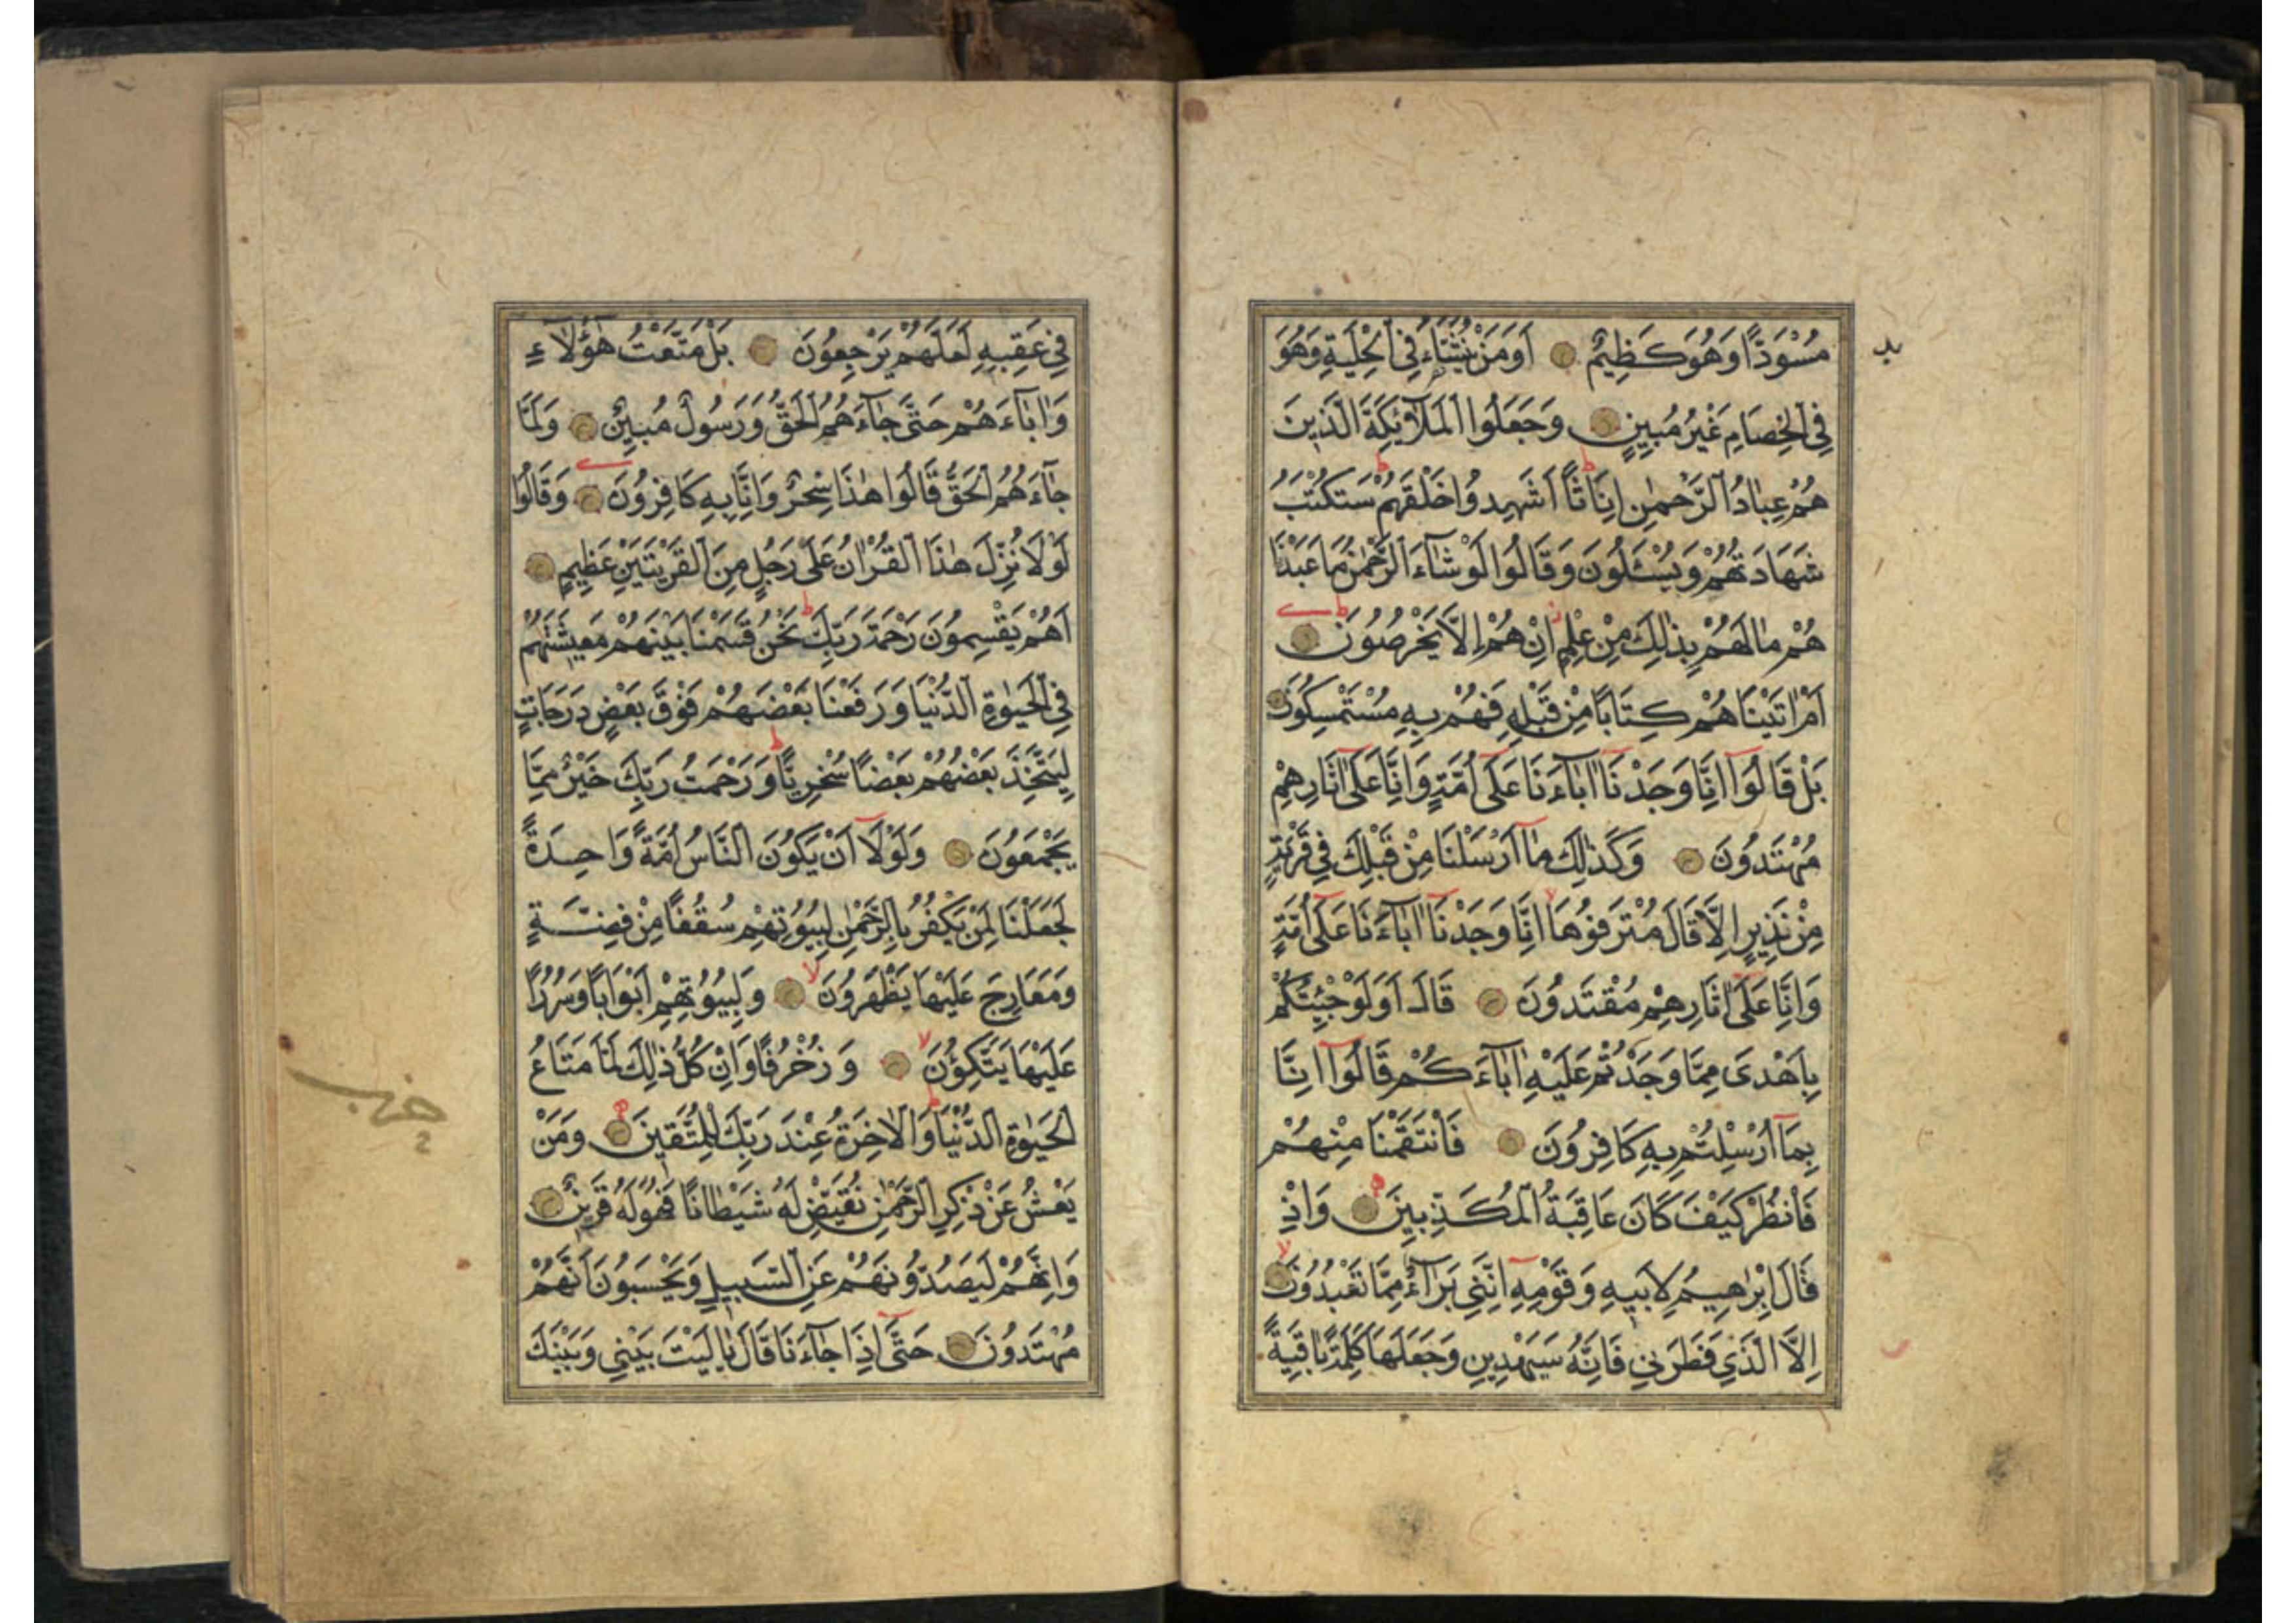 مُسْوَدًّا وَهُوَ كَظِيمٌ اَوَمَنْ يُنَشَّاءُ فِي الْحِلْيَةِ وَهُوَ
فِي الْخِصَامِ غَيْرُ مُبِينٍ وَجَعَلُوا الْمَلَآئِكَةَ الَّذِينَ
هُمْ عِبَادُ الرَّحْمٰنِ اِنَاثًا اَشَهِدُوا خَلْقَهُمْ سَتُكْتَبُ
شَهَادَتُهُمْ وَيُسْـَٔلُونَ وَقَالُوا لَوْ شَآءَ الرَّحْمٰنُ مَا عَبَدْنَا
هُمْ مَا لَهُمْ بِذٰلِكَ مِنْ عِلْمٍ اِنْ هُمْ اِلَّا يَخْرُصُونَ
اَمْ اٰتَيْنَاهُمْ كِتَابًا مِنْ قَبْلِهِ فَهُمْ بِهِ مُسْتَمْسِكُونَ
بَلْ قَالُوٓا اِنَّا وَجَدْنَآ اٰبَآءَنَا عَلٰٓى اُمَّةٍ وَاِنَّا عَلٰٓى اٰثَارِهِمْ
مُهْتَدُونَ وَكَذٰلِكَ مَآ اَرْسَلْنَا مِنْ قَبْلِكَ فِي قَرْيَةٍ
مِنْ نَذِيرٍ اِلَّا قَالَ مُتْرَفُوهَآ اِنَّا وَجَدْنَآ اٰبَآءَنَا عَلٰٓى اُمَّةٍ
وَاِنَّا عَلٰٓى اٰثَارِهِمْ مُقْتَدُونَ قَالَ اَوَلَوْ جِئْتُكُمْ
بِاَهْدَى مِمَّا وَجَدْتُمْ عَلَيْهِ اٰبَآءَكُمْ قَالُوٓا اِنَّا
بِمَآ اُرْسِلْتُمْ بِهِ كَافِرُونَ فَانْتَقَمْنَا مِنْهُمْ
فَانْظُرْ كَيْفَ كَانَ عَاقِبَةُ الْمُكَذِّبِينَ وَاِذْ
قَالَ اِبْرٰهِيمُ لِاَبِيهِ وَقَوْمِهِٓ اِنَّنِي بَرَآءٌ مِمَّا تَعْبُدُونَ
اِلَّا الَّذِي فَطَرَنِي فَاِنَّهُ سَيَهْدِينِ وَجَعَلَهَا كَلِمَةً بَاقِيَةً
فِي عَقِبِهِ لَعَلَّهُمْ يَرْجِعُونَ بَلْ مَتَّعْتُ هٰٓؤُلَآءِ
وَاٰبَآءَهُمْ حَتّٰى جَآءَهُمُ الْحَقُّ وَرَسُولٌ مُبِينٌ وَلَمَّا
جَآءَهُمُ الْحَقُّ قَالُوا هٰذَا سِحْرٌ وَاِنَّا بِهِ كَافِرُونَ وَقَالُوا
لَوْلَا نُزِّلَ هٰذَا الْقُرْاٰنُ عَلٰى رَجُلٍ مِنَ الْقَرْيَتَيْنِ عَظِيمٍ
اَهُمْ يَقْسِمُونَ رَحْمَةَ رَبِّكَ نَحْنُ قَسَمْنَا بَيْنَهُمْ مَعِيشَتَهُمْ
فِي الْحَيٰوةِ الدُّنْيَا وَرَفَعْنَا بَعْضَهُمْ فَوْقَ بَعْضٍ دَرَجَاتٍ
لِيَتَّخِذَ بَعْضُهُمْ بَعْضًا سُخْرِيًّا وَرَحْمَتُ رَبِّكَ خَيْرٌ مِمَّا
يَجْمَعُونَ وَلَوْلَآ اَنْ يَكُونَ النَّاسُ اُمَّةً وَاحِدَةً
لَجَعَلْنَا لِمَنْ يَكْفُرُ بِالرَّحْمٰنِ لِبُيُوتِهِمْ سُقُفًا مِنْ فِضَّةٍ
وَمَعَارِجَ عَلَيْهَا يَظْهَرُونَ وَلِبُيُوتِهِمْ اَبْوَابًا وَسُرُرًا
عَلَيْهَا يَتَّكِؤُنَ وَزُخْرُفًا وَاِنْ كُلُّ ذٰلِكَ لَمَّا مَتَاعُ
الْحَيٰوةِ الدُّنْيَا وَالْاٰخِرَةُ عِنْدَ رَبِّكَ لِلْمُتَّقِينَ وَمَنْ
يَعْشُ عَنْ ذِكْرِ الرَّحْمٰنِ نُقَيِّضْ لَهُ شَيْطَانًا فَهُوَ لَهُ قَرِينٌ
وَاِنَّهُمْ لَيَصُدُّونَهُمْ عَنِ السَّبِيلِ وَيَحْسَبُونَ اَنَّهُمْ
مُهْتَدُونَ حَتّٰٓى اِذَا جَآءَنَا قَالَ يَا لَيْتَ بَيْنِي وَبَيْنَكَ